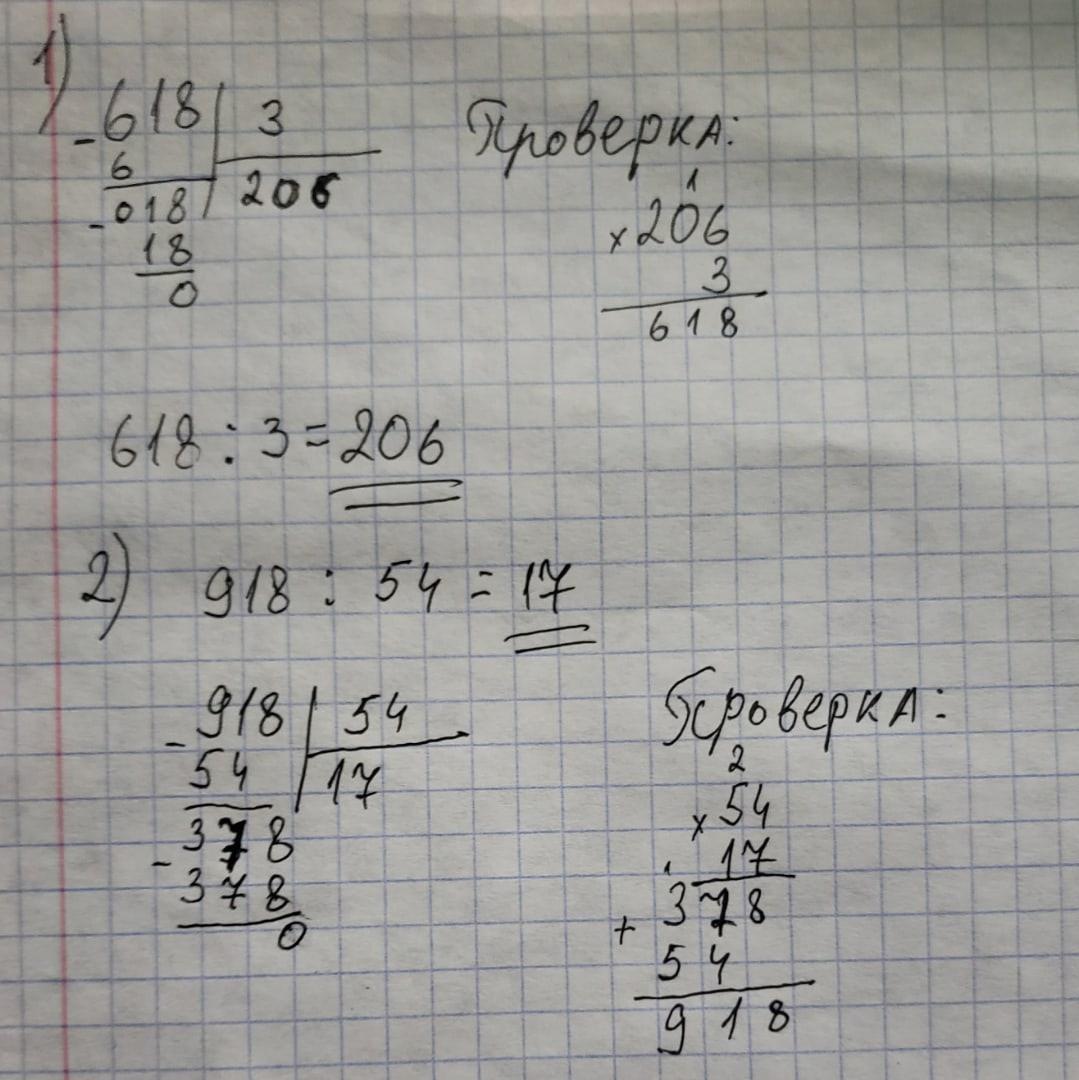 1)
-618 | 3
6
206
-018
18
0
Проверка:
1
×206
3
618
618 : 3 = 206
2) 918 : 54 = 17
-918 | 54
54
17
-378
378
0
Проверка:
2
×54
17
+378
54
918